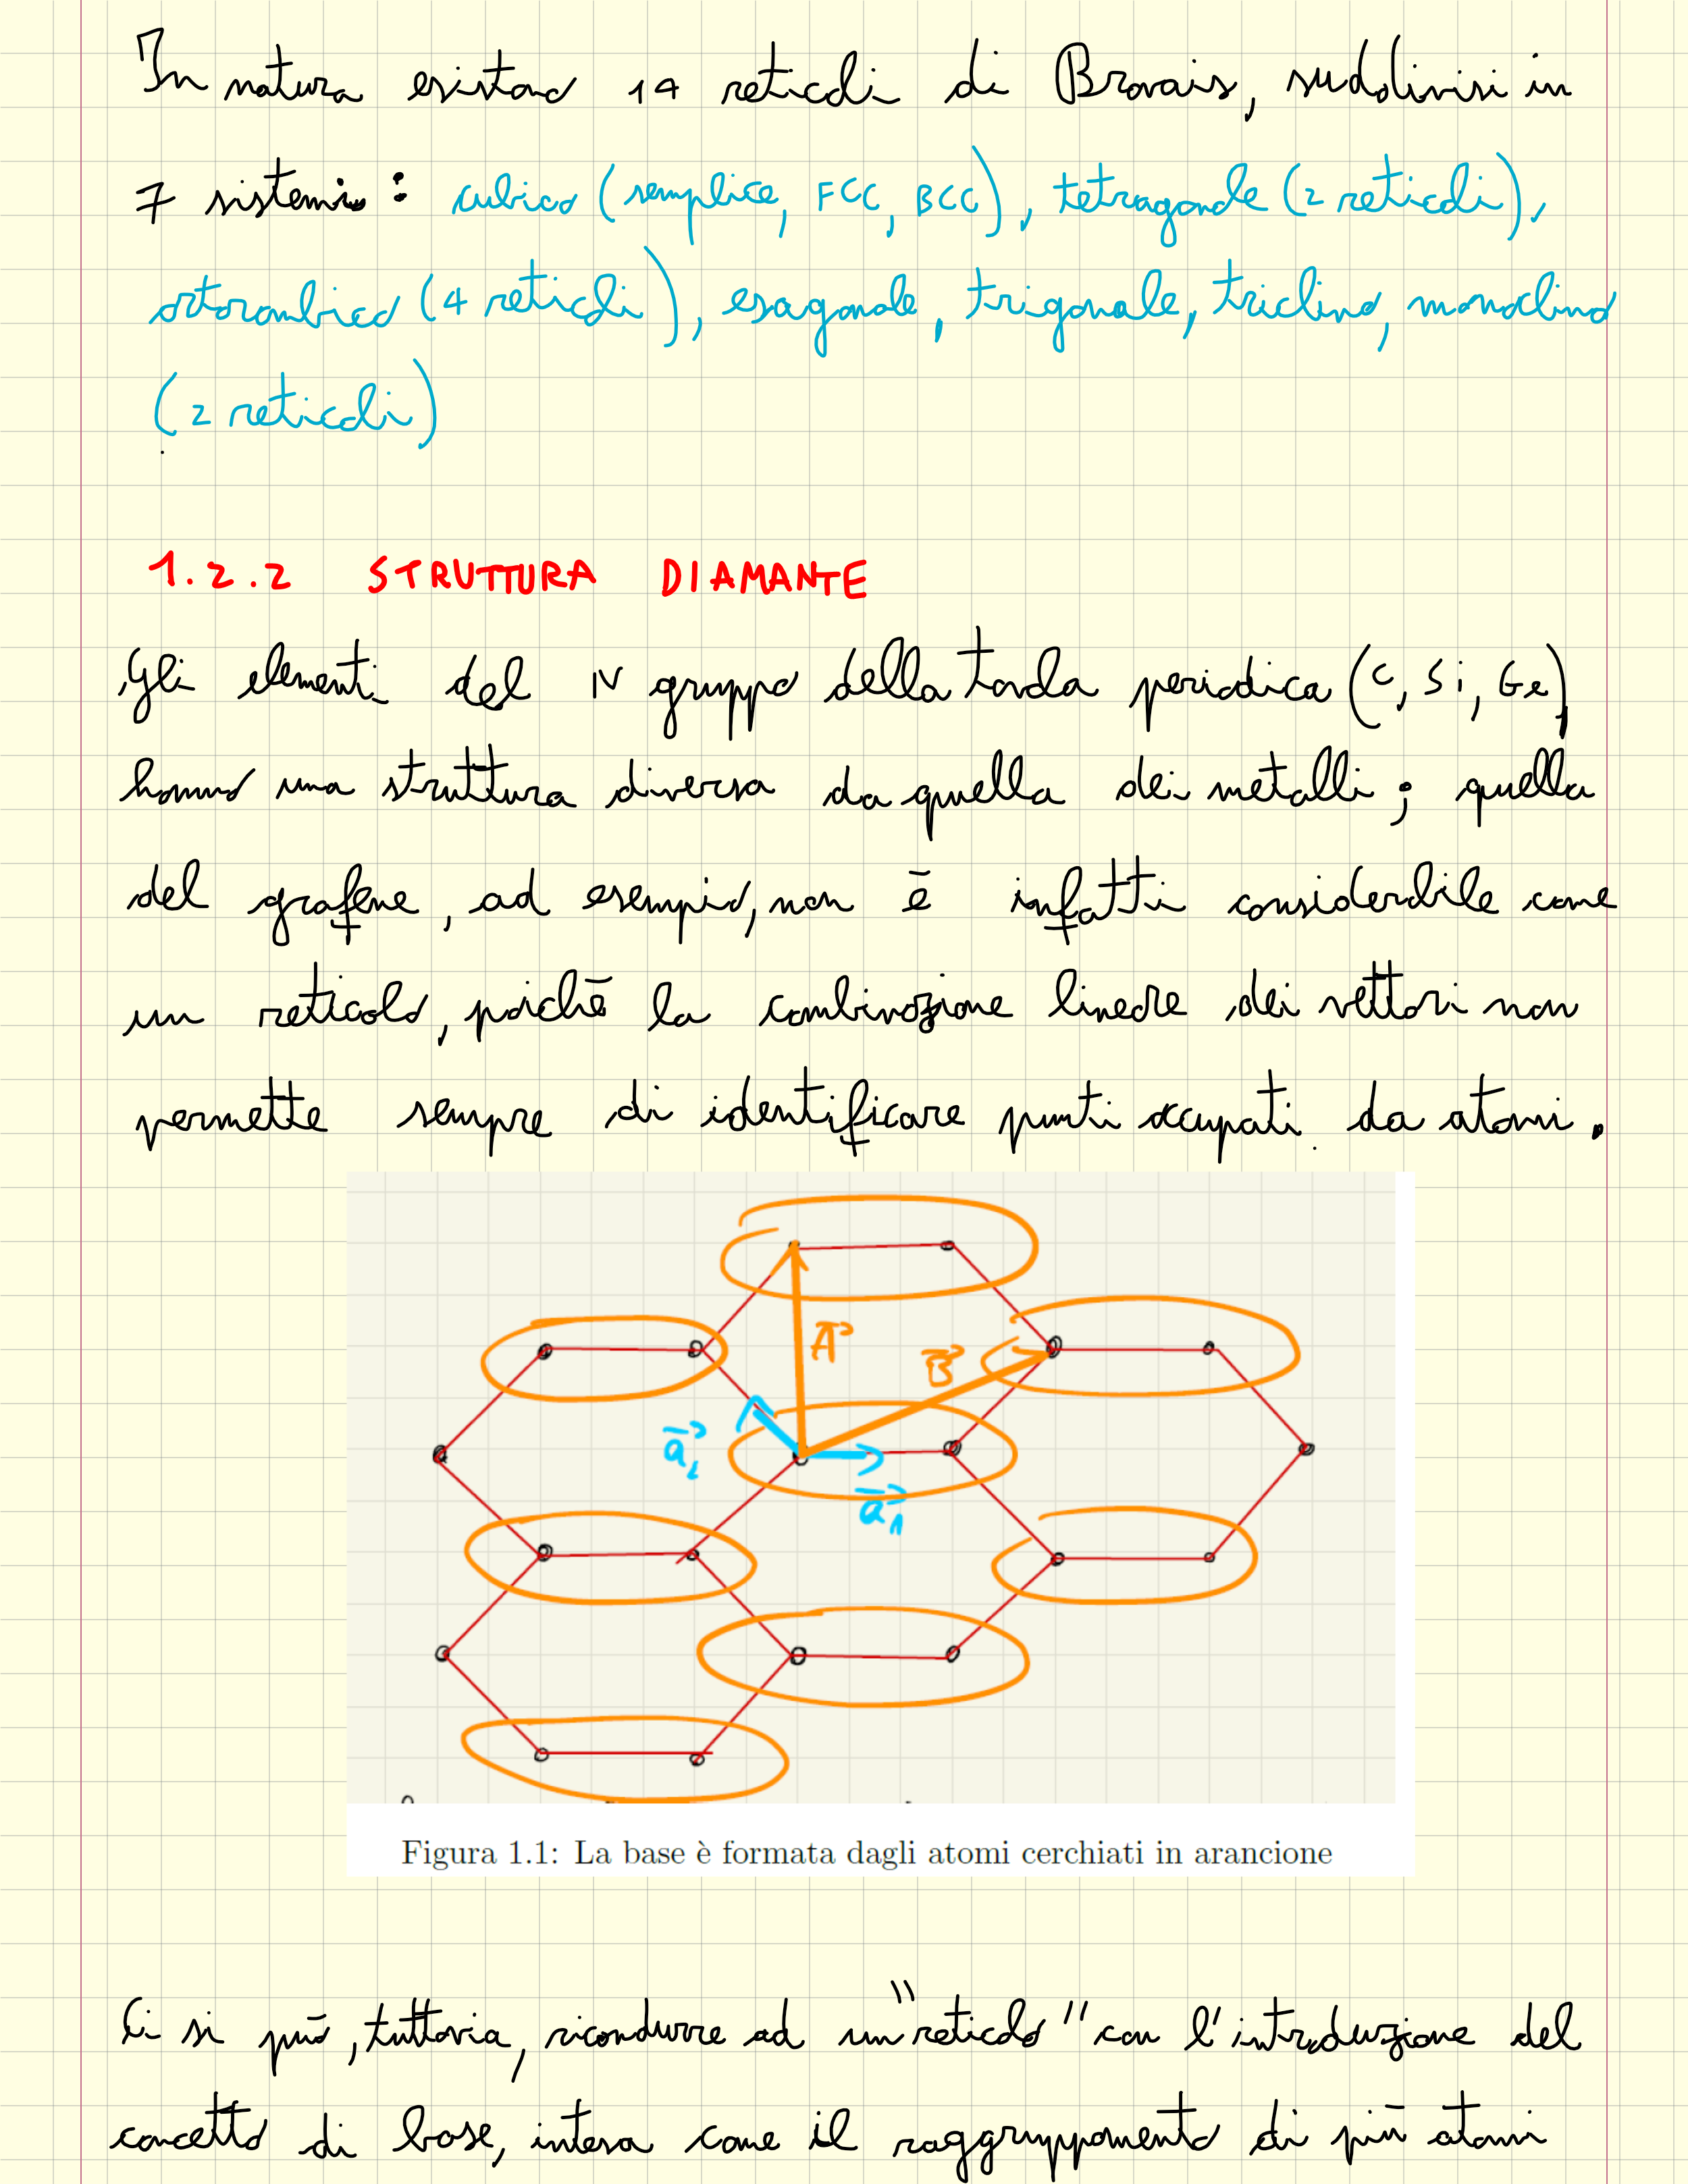 In natura esistono 14 reticoli di Bravais, suddivisi in
7 sistemi: cubico (semplice, FCC, BCC), tetragonale (2 reticoli),
ortorombico (4 reticoli), esagonale, trigonale, triclino, monoclino
(2 reticoli)
1.2.2 STRUTTURA DIAMANTE
Gli elementi del IV gruppo della tavola periodica (C, Si, Ge)
hanno una struttura diversa da quella dei metalli; quella
del grafene, ad esempio, non è infatti considerabile come
un reticolo, poiché la combinazione lineare dei vettori non
permette sempre di identificare punti occupati da atomi.
A⃗
B⃗
a⃗₂
a⃗₁
Figura 1.1: La base è formata dagli atomi cerchiati in arancione
Ci si può, tuttavia, ricondurre ad un "reticolo" con l'introduzione del
concetto di base, intesa come il raggruppamento di più atomi